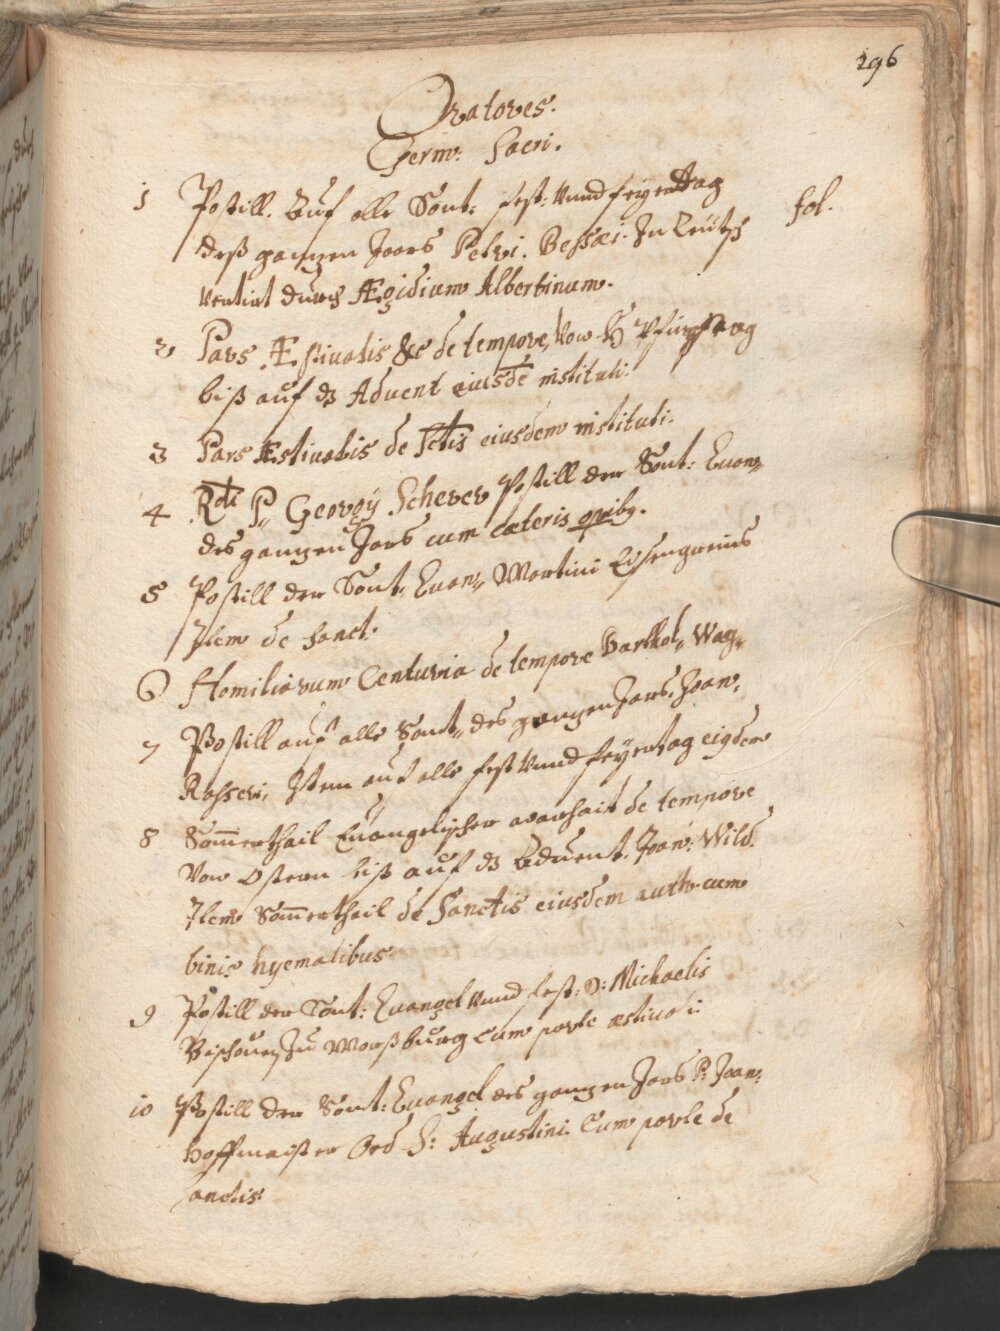 296
Oratores.
Germ: Sacri.
fol.
1 Postill. Auf alle Sont: fest: vnnd feyerttag
deß ganzen Jaars Petri. Bessæi. In Teütsch
vertirt durch Ægidium Albertinum.
2 Pars Æstiualis &c de tempore, Von H Pfingstag
biß auf dz Aduent eiusdē instituti.
3 Pars Æstiualis de Sctis eiusdem instituti.
4 Rdi P,, Georgÿ Scherer Postill der Sont: Euan,,
des ganzen Jars cum cæteris opibq.
5 Postill der Sont. Euan,, Martini Eisengreins
Item de sanct:
6 Homiliarum Centuria de tempore Barthol,, Wag,,
7 Postill auf alle Sont,, des ganzen Jars, Joan,
Rasseri, Item auf alle fest vnnd feyrtag eiqdem
8 Som̄erthail Euangelischer warhait de tempore
Von Ostern biß auf dz Aduent. Joan: Wild.
Item Som̄erthail de Sanctis eiusdem auth. cum
binis hyemalibus
9 Postill der Sont: Euangel vnnd fest: D: Michaelis
Bischouen zu Morßburg cum parte æstiua i:
10 Postill der Sont: Euangel des ganzen Jars P: Joan:
Hoffmaister Ord S: Augustini. Cum parte de
sanctis: